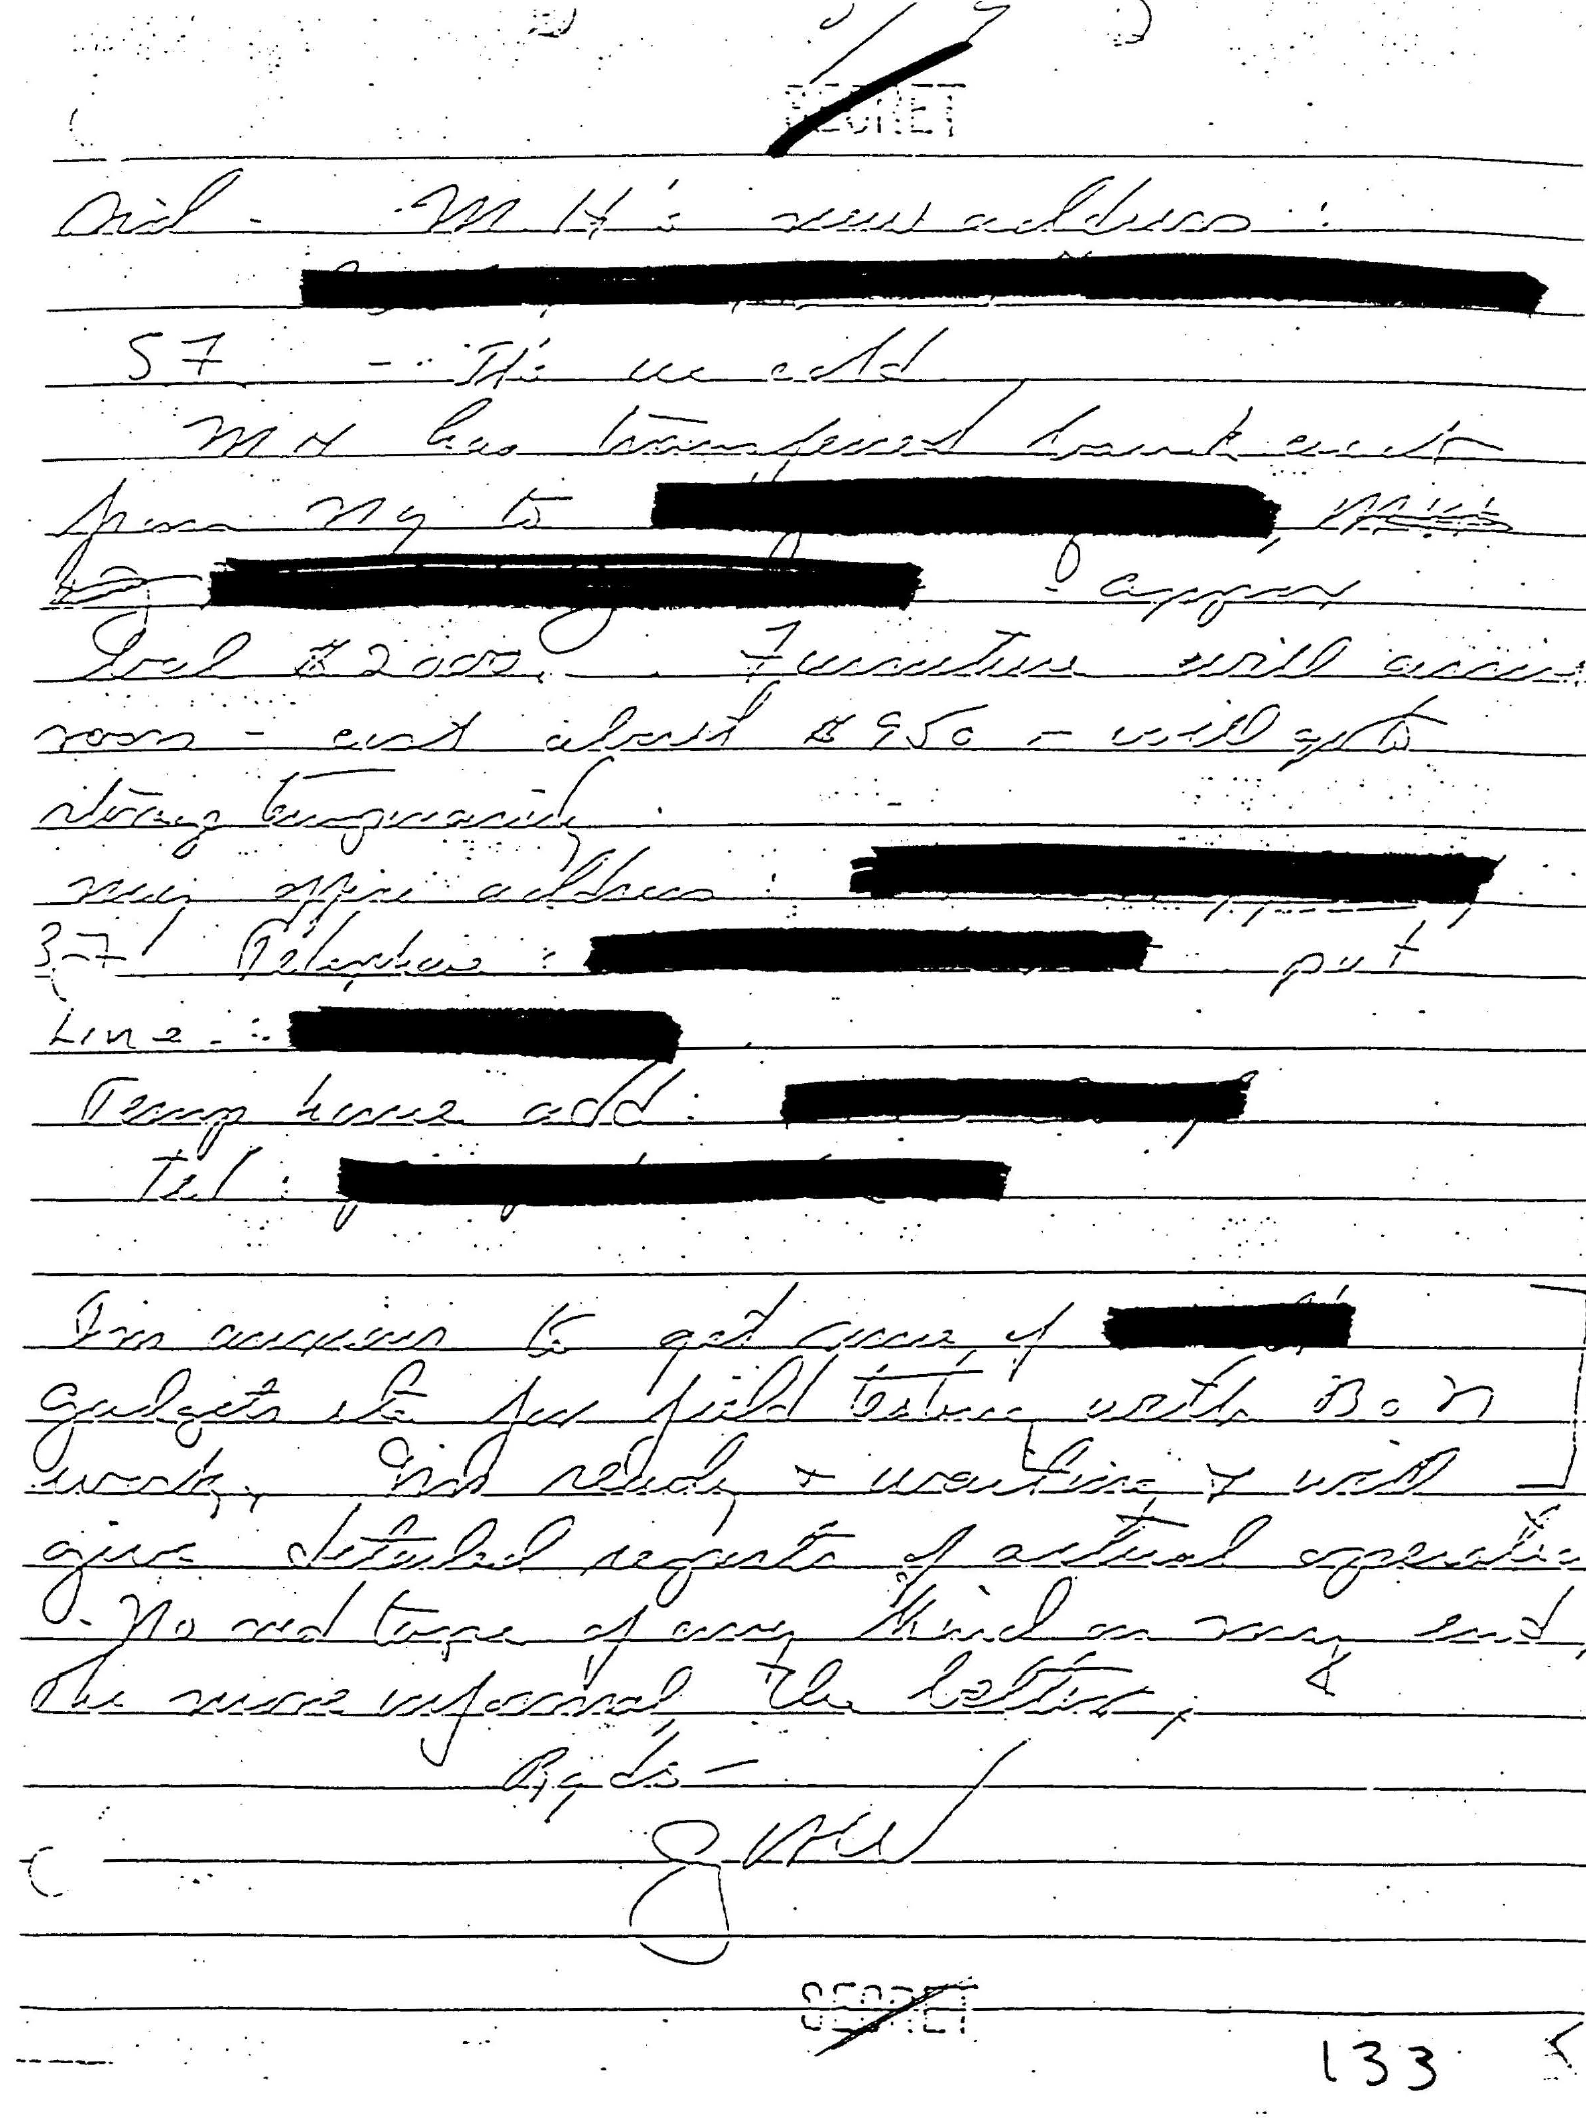 SECRET
Sid - MH's new address :
57 - It's ice cold
MH has transferred bank acct
from NY to
- approx
bal $2000. Furniture will arrive
soon - cost about $950 - will go to
storage temporarily
new office address :
3-7 Telephone : put
Line :
Temp home add :
Tel :
I'm anxious to get some of
gadgets etc for field testing with B of N
work. I'm ready + waiting + will
give detailed reports of actual operation
- No red tape of any kind on my end,
the more informal the better.
Rgds -
SECRET
133